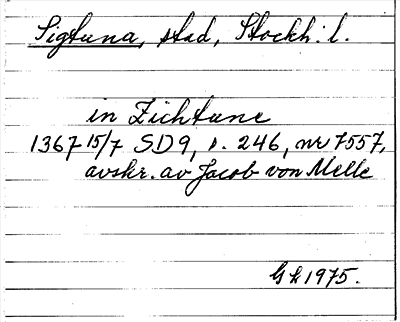 Sigtuna, stad, Stockh. l.
in Zichtune
1367 15/7 SD9, s. 246, nr 7557,
avskr. av Jacob von Melle
1975.